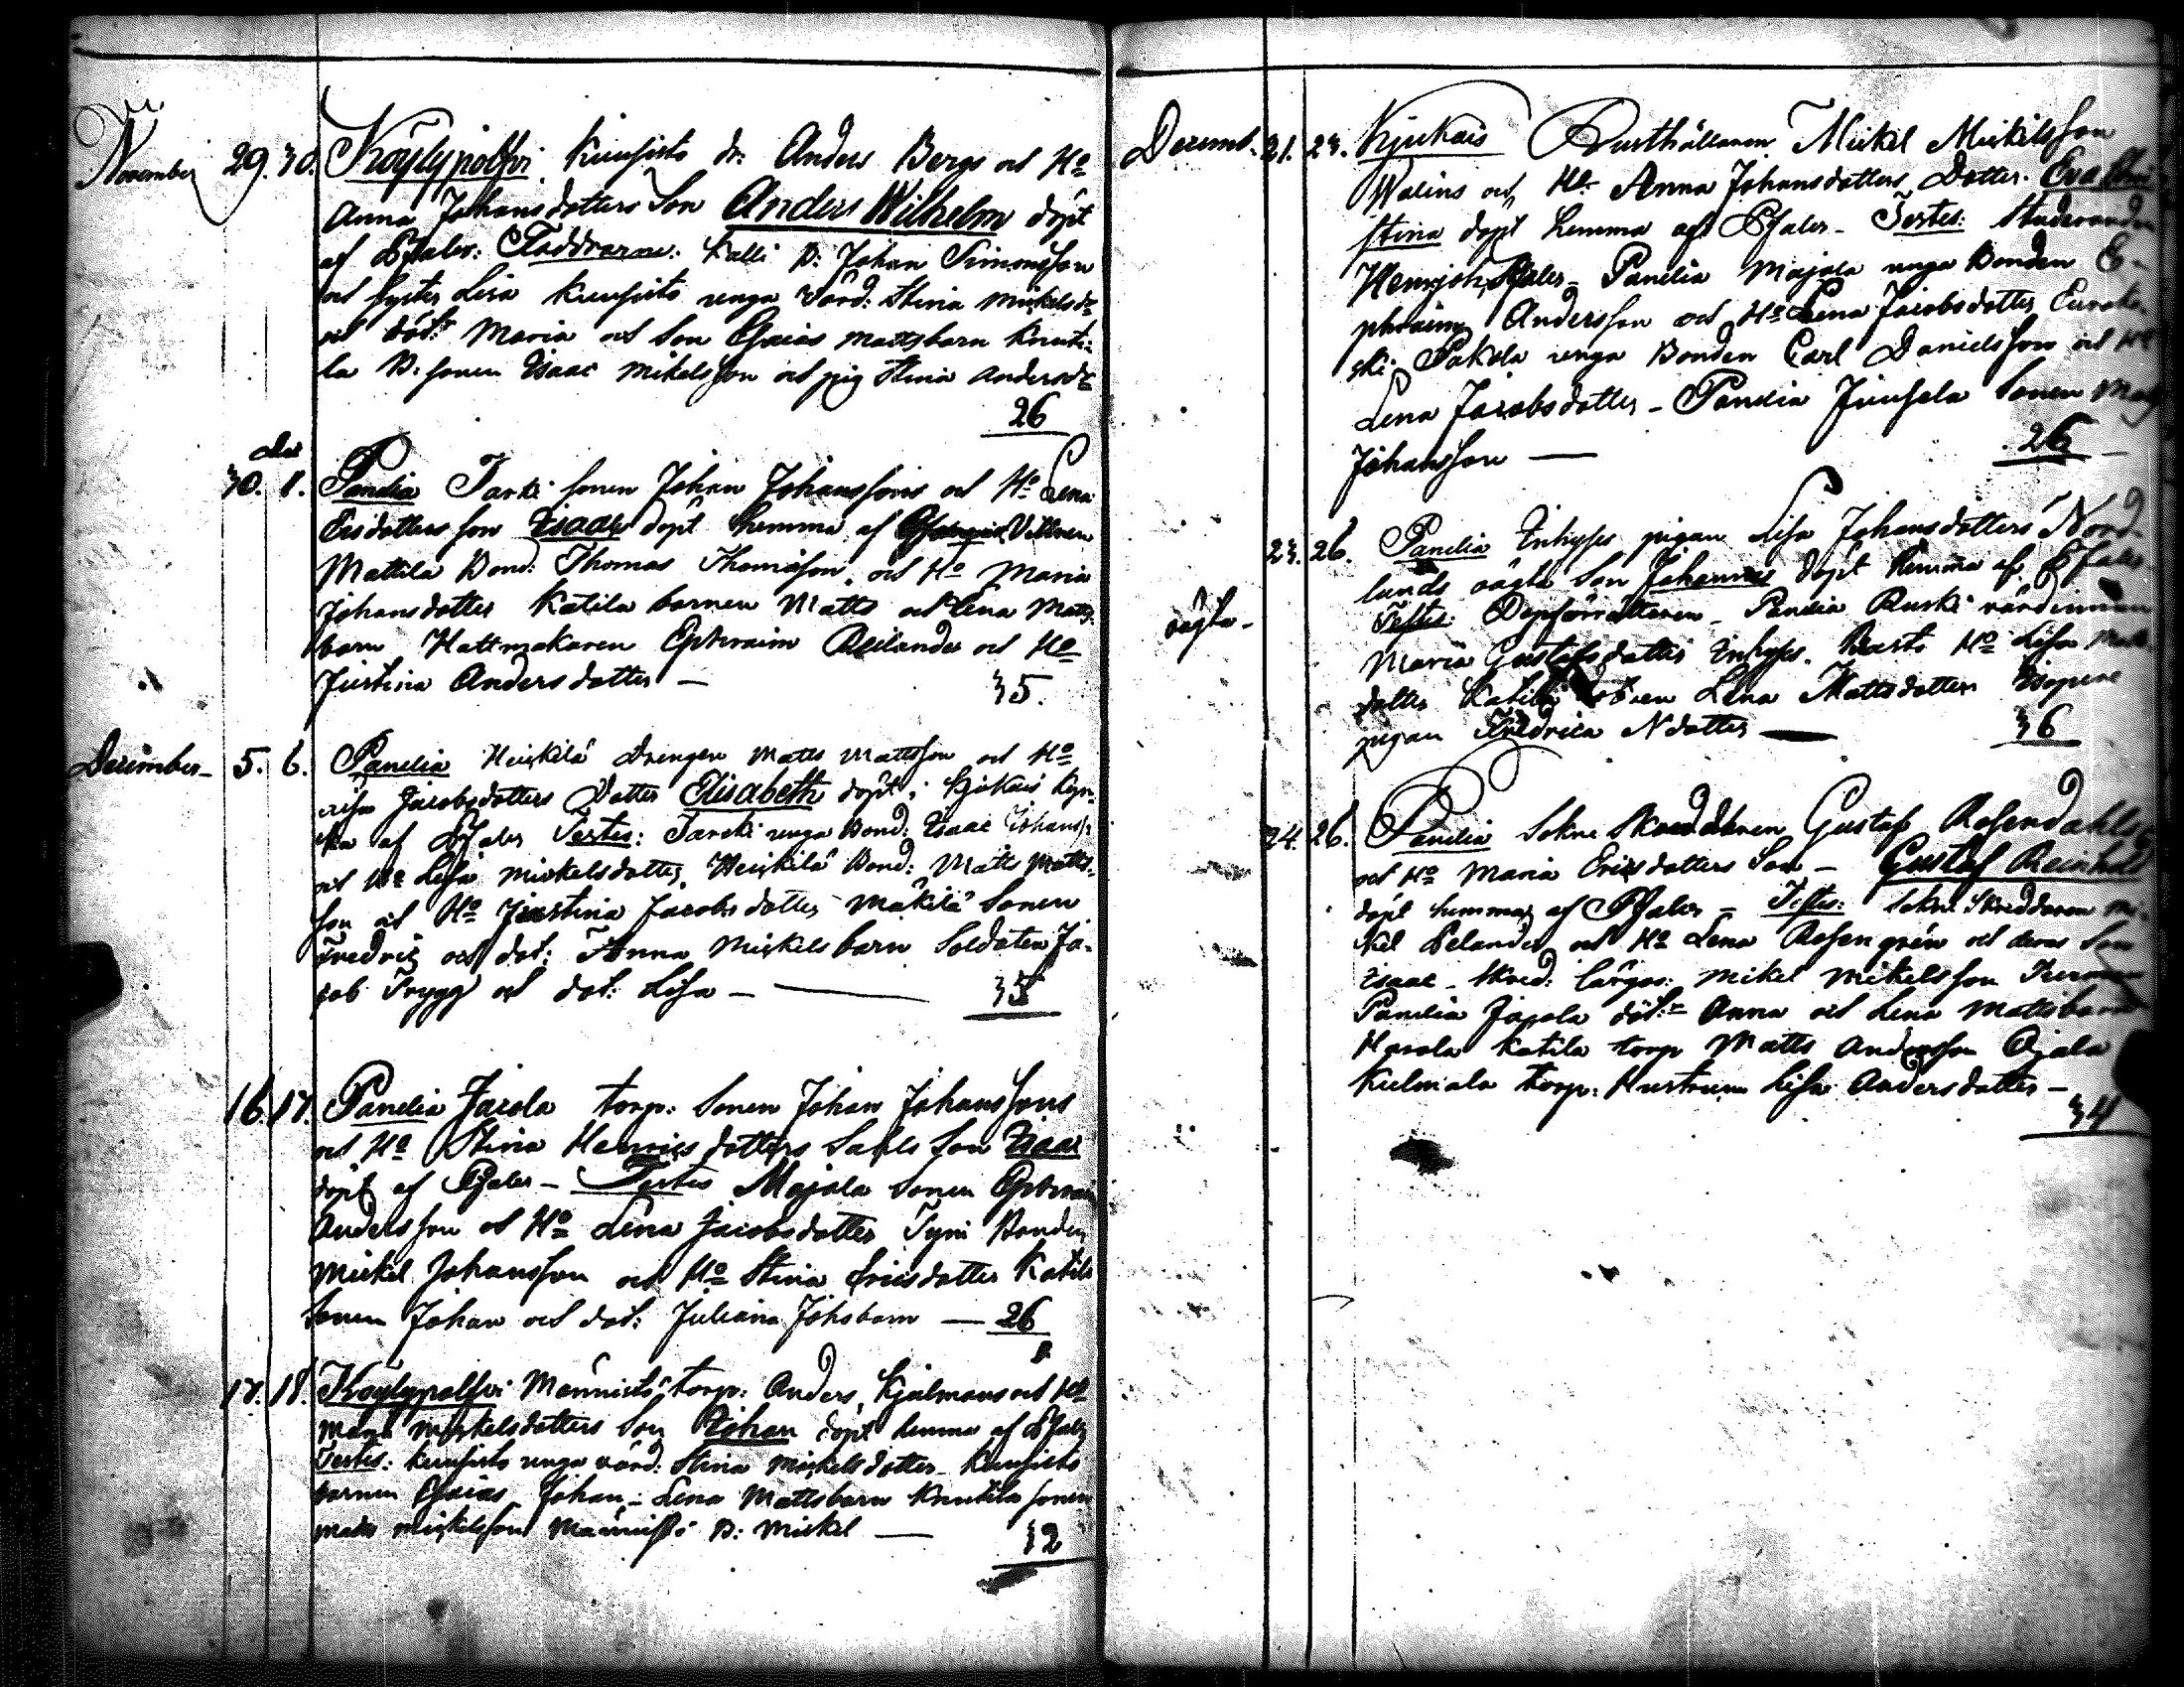 November 29. 30. Köylypolfvi Kuusisto dr: Anders Bergs och Ho
Anna Johansdotters Son Anders Wilhelm döpt
af Pfaler: Faddrarne: Kalli D: Johan Simonsson
och syster Lisa Kuusisto unga värd: Stina Mickelsdr
och döt: Maria och Son Esaias Mattsbarn Knuti-
la D: sonen Isaac Mickelsson och pig Stina Andersdr
26
Dec
30. 1. Panelia Tarki sonen Johan Johanssons och Ho Lena
Ersdotters son Isaac döpt hemma af Villnen
Mattila Bond: Thomas Thomasson och Ho Maria
Johansdotter Katila barnen Matts och Lena Matts
barn Hattmakaren Ephraim Reilander och Ho
Justina Andersdotter —
35.
December 5. 6. Panelia Heickilä Drengen Matts Mattsson och Ho
Lisa Jacobsdotters Dotter Elisabeth döpt i Kjukais Kyr-
ka af Pfaler Testes: Tarcki unga Bond: Isaac Johanss:
och Ho Lisa Mickelsdotter, Heickilä Bond: Matts Matts-
son och Ho Justina Jacobsdotter Mäkilä Sonen
Fredric och dot: Anna Mickelsbarn Soldaten Ja-
cob Trygg och dot: Lisa —
35
16. 17. Panelia Jacola torp: Sonen Johan Johanssons
och Ho Stina Henricsdotters Sahls Son Isaac
döpt af Pfaler — Testes Majala Sonen Ephraim
Andersson och Ho Lena Jacobsdotter Tyni Bonden
Mickel Johansson och Ho Stina Ericsdotter Katila
Sonen Johan och dot: Juliana Johsbarn — 26
17. 18. Köylypolfvi Männistö torp: Anders Hjelmans och Ho
Maria Mickelsdotters Son Johan döpt hemma af Pfaler
Testes: Kuusisto unga värd: Stina Mickelsdotter Kuusisto
barnen Esaias Johan — Lena Mattsbarn Knutila sonen
Matts Mickelsson Männistö D: Mickel —
32
Decemb. 21. 23. Kjukais Rusthållaren Mickel Mickelsson
Walins och Ho Anna Johansdotters Dotter Eva Chri
stina döpt hemma af Pfaler — Testes: Studeranden
Henr Joh Pfaler — Panelia Majala unga Bonden E-
phraim Andersson och Ho Lena Jacobsdotter Eurakos
ki Pakola unga Bonden Carl Danielsson och Ho
Lena Jacobsdotter — Panelia Juusela Sonen Matts
Johansson —
26
oägta — 23. 26. Panelia Inhyses pigan Lisa Johansdotters Nord-
lunds oägta Son Johannes döpt hemma af Pfaler
Testes: Dopförrättaren — Panelia Ruski värdinnan
Maria Gustafsdotter Inhyses Ho Lisa Matts
dotter Katila Lena Mattsdotter
pigan Fredrica Ndotter —
36
24. 26. Panelia Sokne Skreddaren Gustaf Rosendahls
och Ho Maria Ericsdotters Son — Gustaf Reinhold
döpt hemma af Pfaler — Testes: Sokne Skreddaren Mi-
kel Selander och Ho Lena Rosengrén och deras Son
Isaac — Skred: lärgos: Mikel Mickelsson
Panelia Jacola döt: Anna och Lena Mattsbarn
Harola Katila torp Matts Andersson Ojala
Kulmala torp: Hustrun Lisa Andersdotter —
34